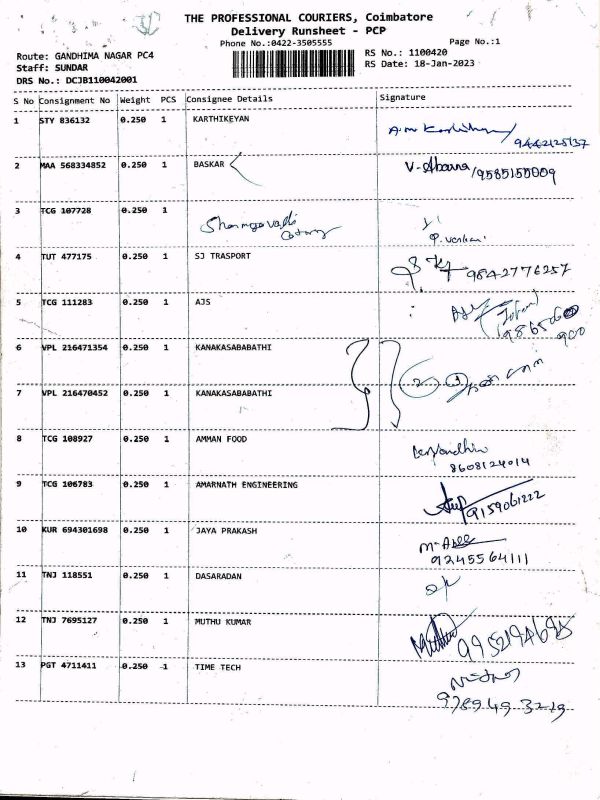 THE PROFESSIONAL COURIERS, Coimbatore
Delivery Runsheet - PCP
Phone No.:0422-3505555
Page No.:1
Route: GANDHIMA NAGAR PC4
RS No.: 1100420
Staff: SUNDAR
RS Date: 18-Jan-2023
DRS No.: DCJB110042001
S No Consignment No Weight PCS Consignee Details Signature
1 STY 836132 0.250 1 KARTHIKEYAN
9442125137
2 MAA 568334852 0.250 1 BASKAR V-Abarna/9585155009
3 TCG 107728 0.250 1
4 TUT 477175 0.250 1 SJ TRASPORT 9842776257
5 TCG 111283 0.250 1 AJS
6 VPL 216471354 0.250 1 KANAKASABABATHI
7 VPL 216470452 0.250 1 KANAKASABABATHI
8 TCG 108927 0.250 1 AMMAN FOOD
8608124014
9 TCG 106783 0.250 1 AMARNATH ENGINEERING
9159061222
10 KUR 694301698 0.250 1 JAYA PRAKASH
9245564111
11 TNJ 118551 0.250 1 DASARADAN
12 TNJ 7695127 0.250 1 MUTHU KUMAR
13 PGT 4711411 0.250 1 TIME TECH
9789493219